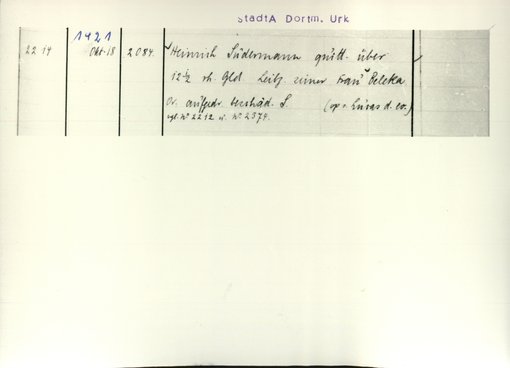 StadtA Dortm. Urk
1421
22 14 Okt. 18 2084. Heinrich Südermann quitt. über
12½ rh. Gld Leibz. seiner Frau Beleka
Or. aufgedr. beschäd. S.
vgl. N° 2212 u. N° 2374.